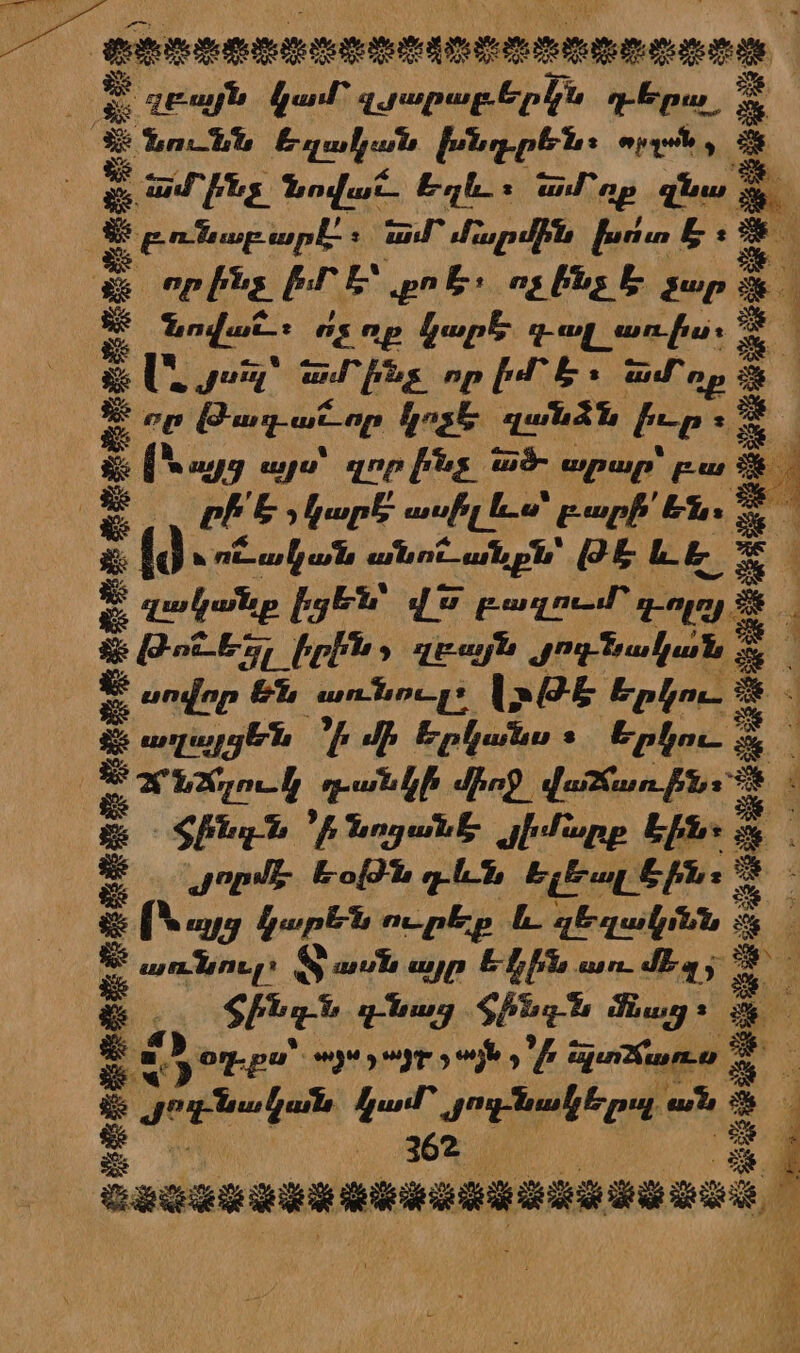 զբայն կամ՝ զյարաբերկն դերա_
նունն եզական խնդրեն։ օրզան,
ամ ինչ նովաւ եղև։ ամ ոք գնա
բռնաբարէ՛։ ամ մարմին խոտ է։
որ ինչ իմ է՝ քո է։ ոչինչ է չար
նովաւ։ ոչ ոք կարէ գալ առիս։
Ը յսպ՝ ամ ինչ որ իմ է։ ամ ոք
որ թագաւոր կոչէ զանձն իւր։
Բայց այս՝ զոր ինչ ած արար՝ բա
րի՛ է, կարէ ասիլ ևս՝ բարի՛ են։
Թուական անուանքն՝ թէ և ե_
զականք իցեն՝ վս բազում գոլոյ
թուեցլ իրին, զբայն յոգնական
սովոր են առնուլ։ Եթէ երկու
աղայցեն ՛ի մի երկանս։ երկու
ճնճղուկ դանկի միոջ վաճառին։
հինգն ՛ի նոցանէ յիմարք էին։
յորմէ եօթն դևն ելեալ էին։
Բայց կարեն ուրեք և զեզակնն
առնուլ։ Տասն այր եկին առ մեզ,
հինգն գնաց հինգն մնաց։
Յօդքս՝ այս, այդ, այն, ՛ի պտճառս
յոգնական կամ յոգնակերպ ան
362